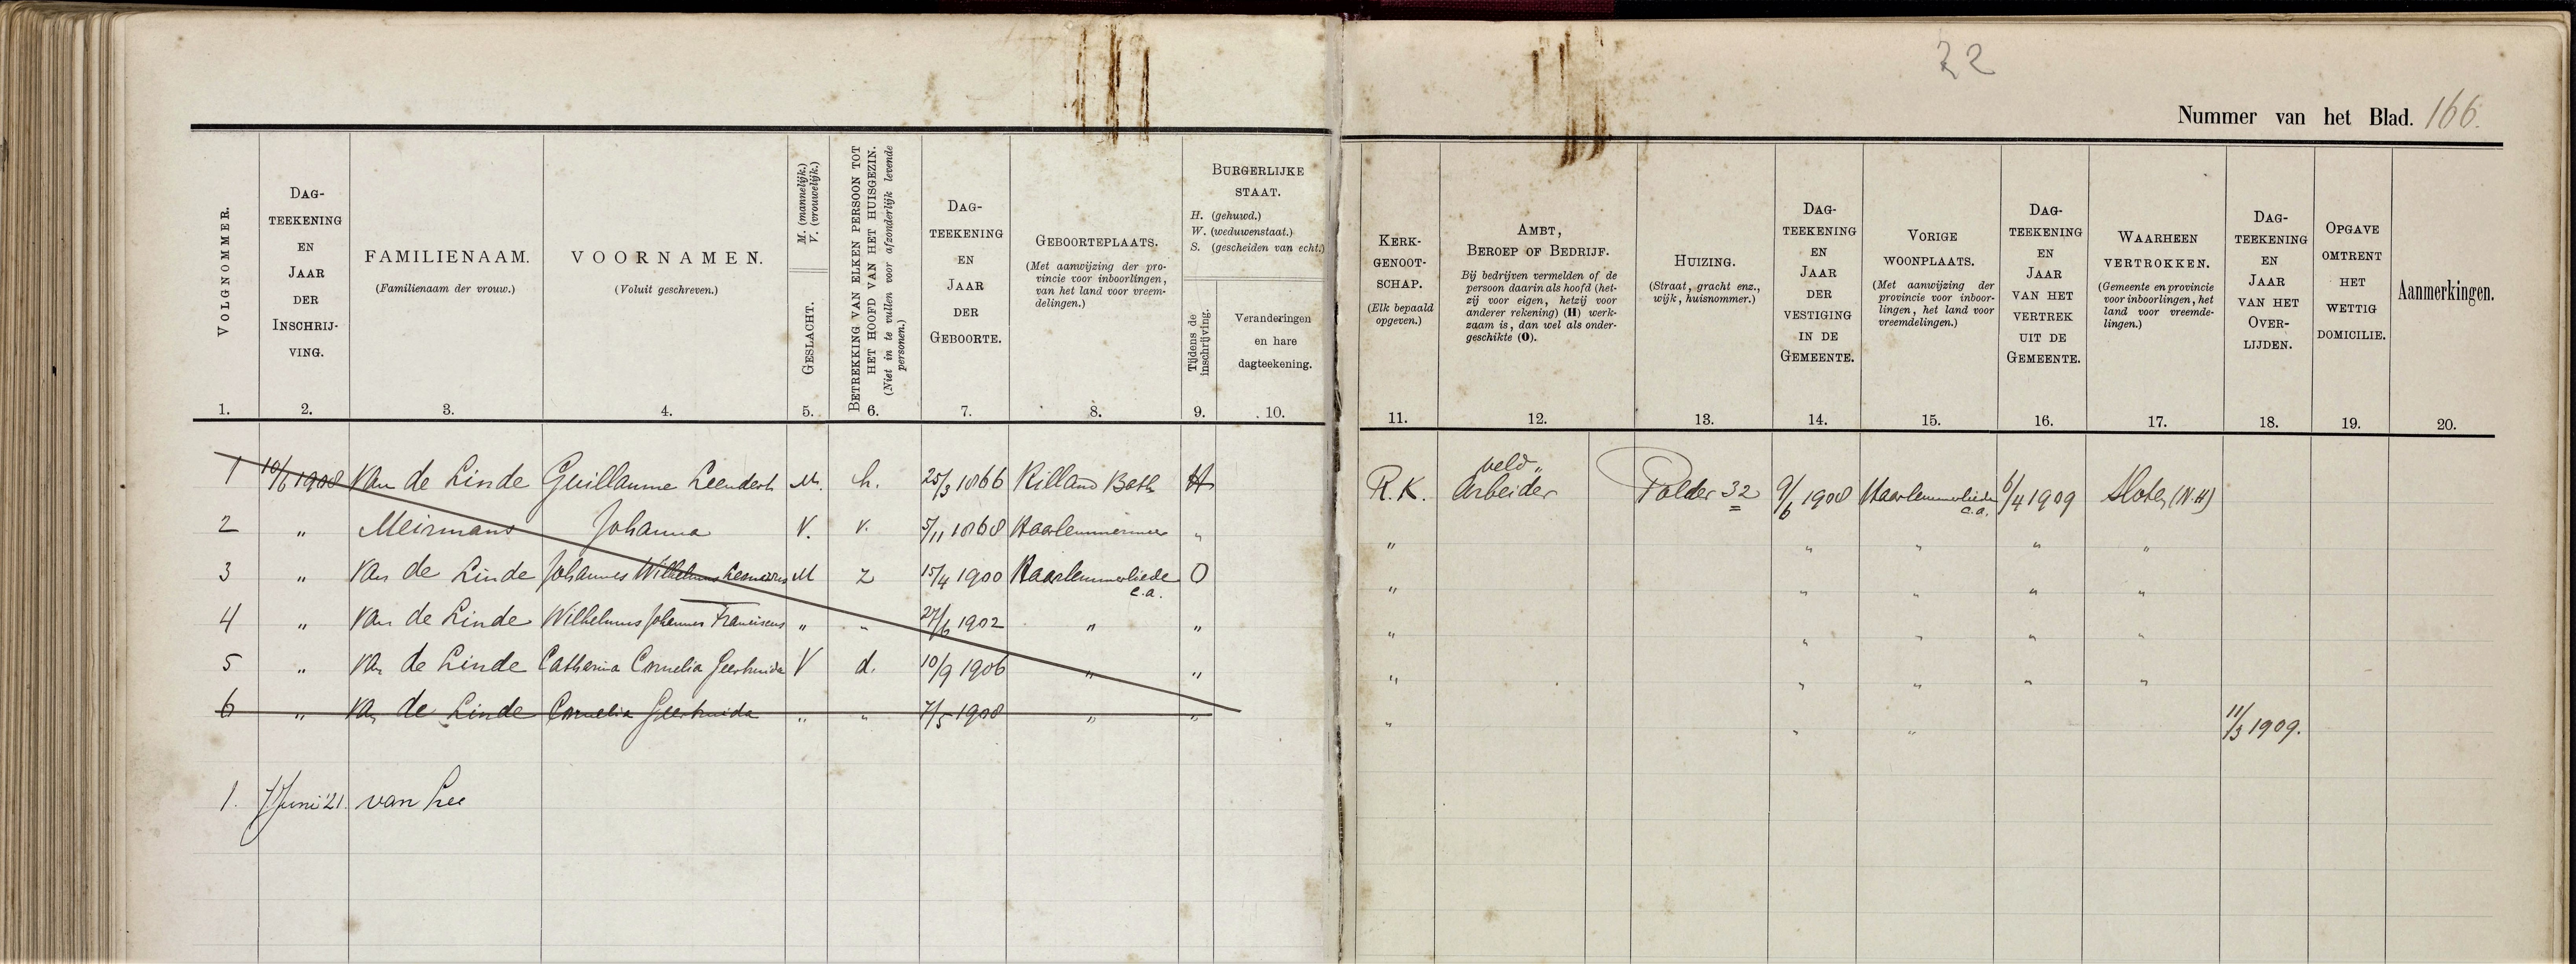 22
Nummer van het Blad. 166.
VOLGNOMMER.
1.
DAG-
TEEKENING
EN
JAAR
DER
INSCHRIJ-
VING.
2.
FAMILIENAAM.
(Familienaam der vrouw.)
3.
VOORNAMEN.
(Voluit geschreven.)
4.
M. (mannelijk.)
V. (vrouwelijk.)
GESLACHT.
5.
BETREKKING VAN ELKEN PERSOON TOT
HET HOOFD VAN HET HUISGEZIN.
(Niet in te vullen voor afzonderlijk levende
personen.)
6.
DAG-
TEEKENING
EN
JAAR
DER
GEBOORTE.
7.
GEBOORTEPLAATS.
(Met aanwijzing der pro-
vincie voor inboorlingen,
van het land voor vreem-
delingen.)
8.
BURGERLIJKE
STAAT.
H. (gehuwd.)
W. (weduwenstaat.)
S. (gescheiden van echt.)
Tijdens de
inschrijving.
9.
Veranderingen
en hare
dagteekening.
10.
KERK-
GENOOT-
SCHAP.
(Elk bepaald
opgeven.)
11.
AMBT,
BEROEP OF BEDRIJF.
Bij bedrijven vermelden of de
persoon daarin als hoofd (het-
zij voor eigen, hetzij voor
anderer rekening) (H) werk-
zaam is, dan wel als onder-
geschikte (O).
12.
HUIZING.
(Straat, gracht enz.,
wijk, huisnommer.)
13.
DAG-
TEEKENING
EN
JAAR
DER
VESTIGING
IN DE
GEMEENTE.
14.
VORIGE
WOONPLAATS.
(Met aanwijzing der
provincie voor inboor-
lingen, het land voor
vreemdelingen.)
15.
DAG-
TEEKENING
EN
JAAR
VAN HET
VERTREK
UIT DE
GEMEENTE.
16.
WAARHEEN
VERTROKKEN.
(Gemeente en provincie
voor inboorlingen, het
land voor vreemde-
lingen.)
17.
DAG-
TEEKENING
EN
JAAR
VAN HET
OVER-
LIJDEN.
18.
OPGAVE
OMTRENT
HET
WETTIG
DOMICILIE.
19.
Aanmerkingen.
20.
1 10/6 1908 Van de Linde Guillaume Leendert M. h. 25/3 1866 Rilland Bath H R.K. veld„ Arbeider Polder 32 9/6 1908 Haarlemmerliede c.a. 6/4 1909 Sloten (N.H)
2 " Meirmans Johanna V. v. 5/11 1868 Haarlemmermeer " " " " " "
3 " Van de Linde Johannes Wilhelmus M z 15/4 1900 Haarlemmerliede c.a. O " " " " "
4 " Van de Linde Wilhelmus Johannes Franciscus " " 27/6 1902 " " " " " " "
5 " Van de Linde Catharina Cornelia Geertruida V d. 10/9 1906 " " " " " " "
6 " Van de Linde Cornelia Geertruida " " 7/5 1908 " " " " " 11/3 1909.
1. 7 Juni '21 van Lee